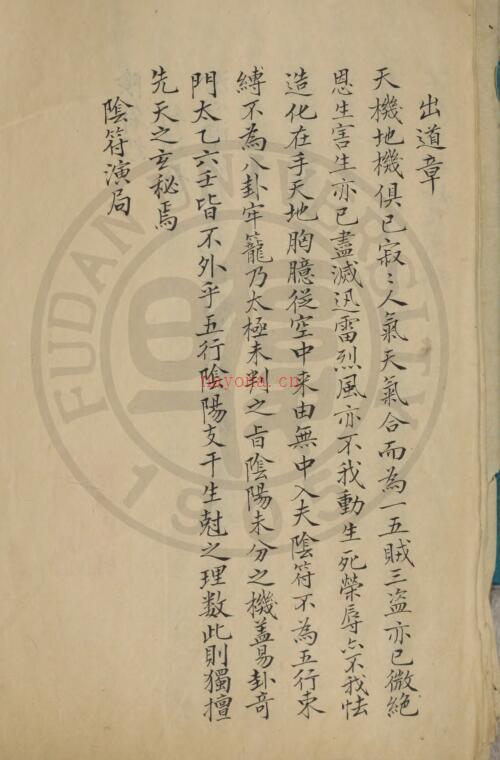 出道章
天機地機俱已寂〻人氣天氣合而為一五賊三盜亦已微絕
恩生害生亦已盡滅迅雷烈風亦不我動生死榮辱亦不我怯
造化在手天地胸臆從空中来由無中入夫陰符不為五行束
縛不為八卦牢籠乃太極未判之旨陰陽未分之機蓋易卦竒
門太乙六壬皆不外乎五行陰陽支干生尅之理数此則獨擅
先天之玄秘焉
陰符演局
FUDAN UNIVERSITY
1905
nayona.cn